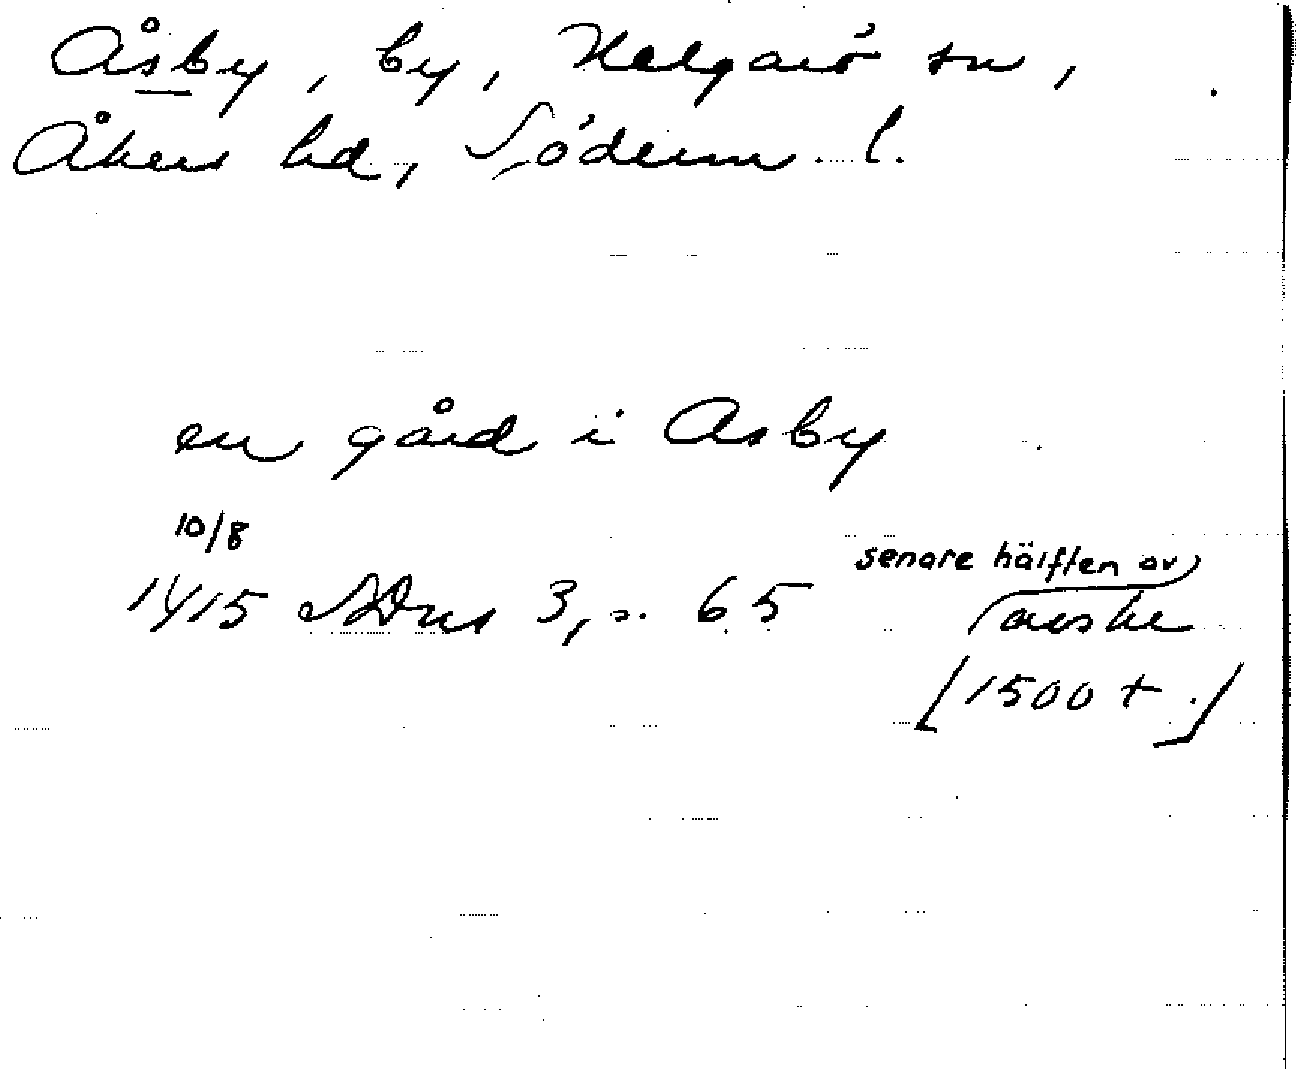 Åsby, by, Helgarö sn,
Åkers hd, Söderm. l.
en gård i Asby
10/8
1415 SDns 3, s. 65
senare hälften av
avskr
[1500 t.]